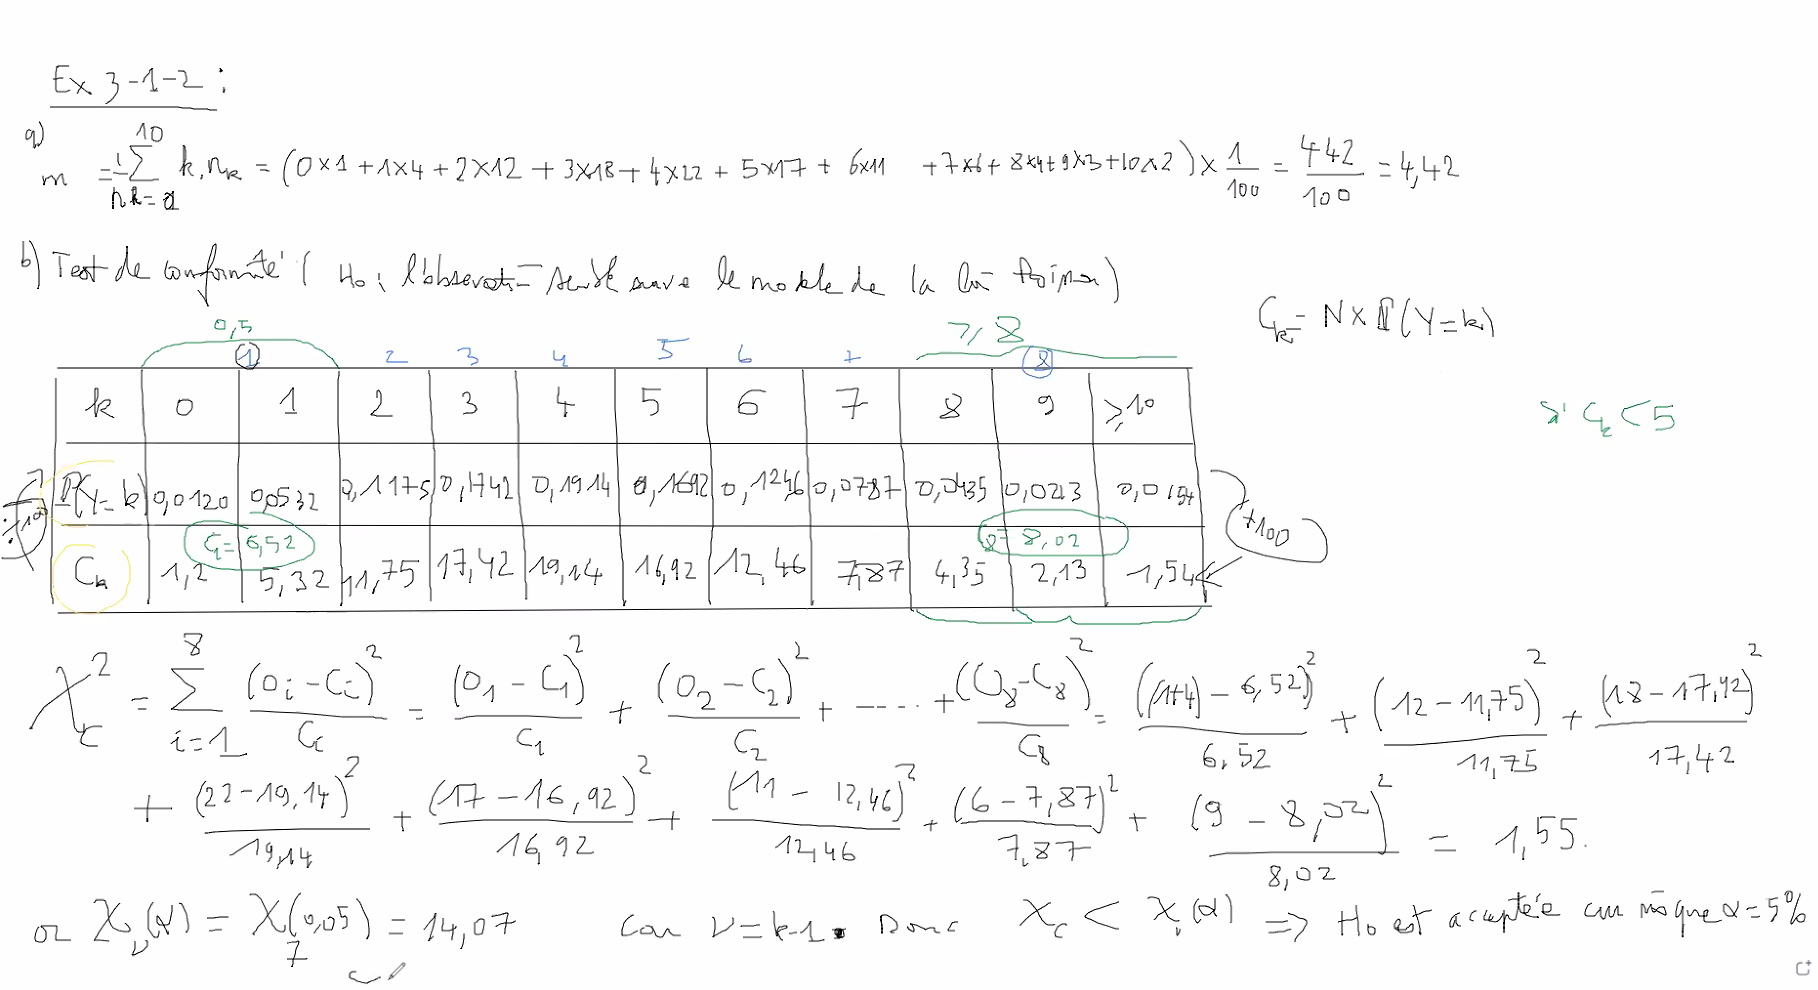 Ex 3-1-2 :
a) m = 1/n ∑_{k=0}^{10} k.n_k = (0×1 + 1×4 + 2×12 + 3×18 + 4×22 + 5×17 + 6×11 + 7×6 + 8×4 + 9×3 + 10×2) × 1/100 = 442/100 = 4,42
b) Test de conformité ( H0 : le modele de la loi
C_k = N × P(Y=k)
0,5 ≥ 8
1 2 3 4 5 6 7 8
k 0 1 2 3 4 5 6 7 8 9 ≥10
si C_k < 5
P(Y=k) 0,0120 0,0532 0,1175 0,1742 0,1914 0,1692 0,1246 0,0787 0,0435 0,0213 0,0154
×100
C_1 = 6,52 C_8 = 8,02
C_k 1,2 5,32 11,75 17,42 19,14 16,92 12,46 7,87 4,35 2,13 1,54
χ²_c = ∑_{i=1}^{8} (O_i - C_i)²/C_i = (O_1 - C_1)²/C_1 + (O_2 - C_2)²/C_2 + ---- + (O_8 - C_8)²/C_8 = ((1+4) - 6,52)²/6,52 + (12 - 11,75)²/11,75 + (18 - 17,42)²/17,42
+ (22 - 19,14)²/19,14 + (17 - 16,92)²/16,92 + (11 - 12,46)²/12,46 + (6 - 7,87)²/7,87 + (9 - 8,02)²/8,02 = 1,55.
or χ_ν(α) = χ_7(0,05) = 14,07 car ν = k-1. Donc χ_c < χ_ν(α) ⇒ H0 est acceptée au risque α = 5%